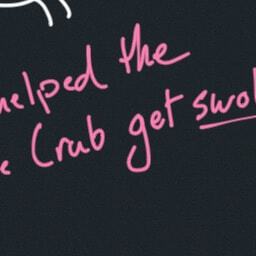 helped the
e Crab get swol